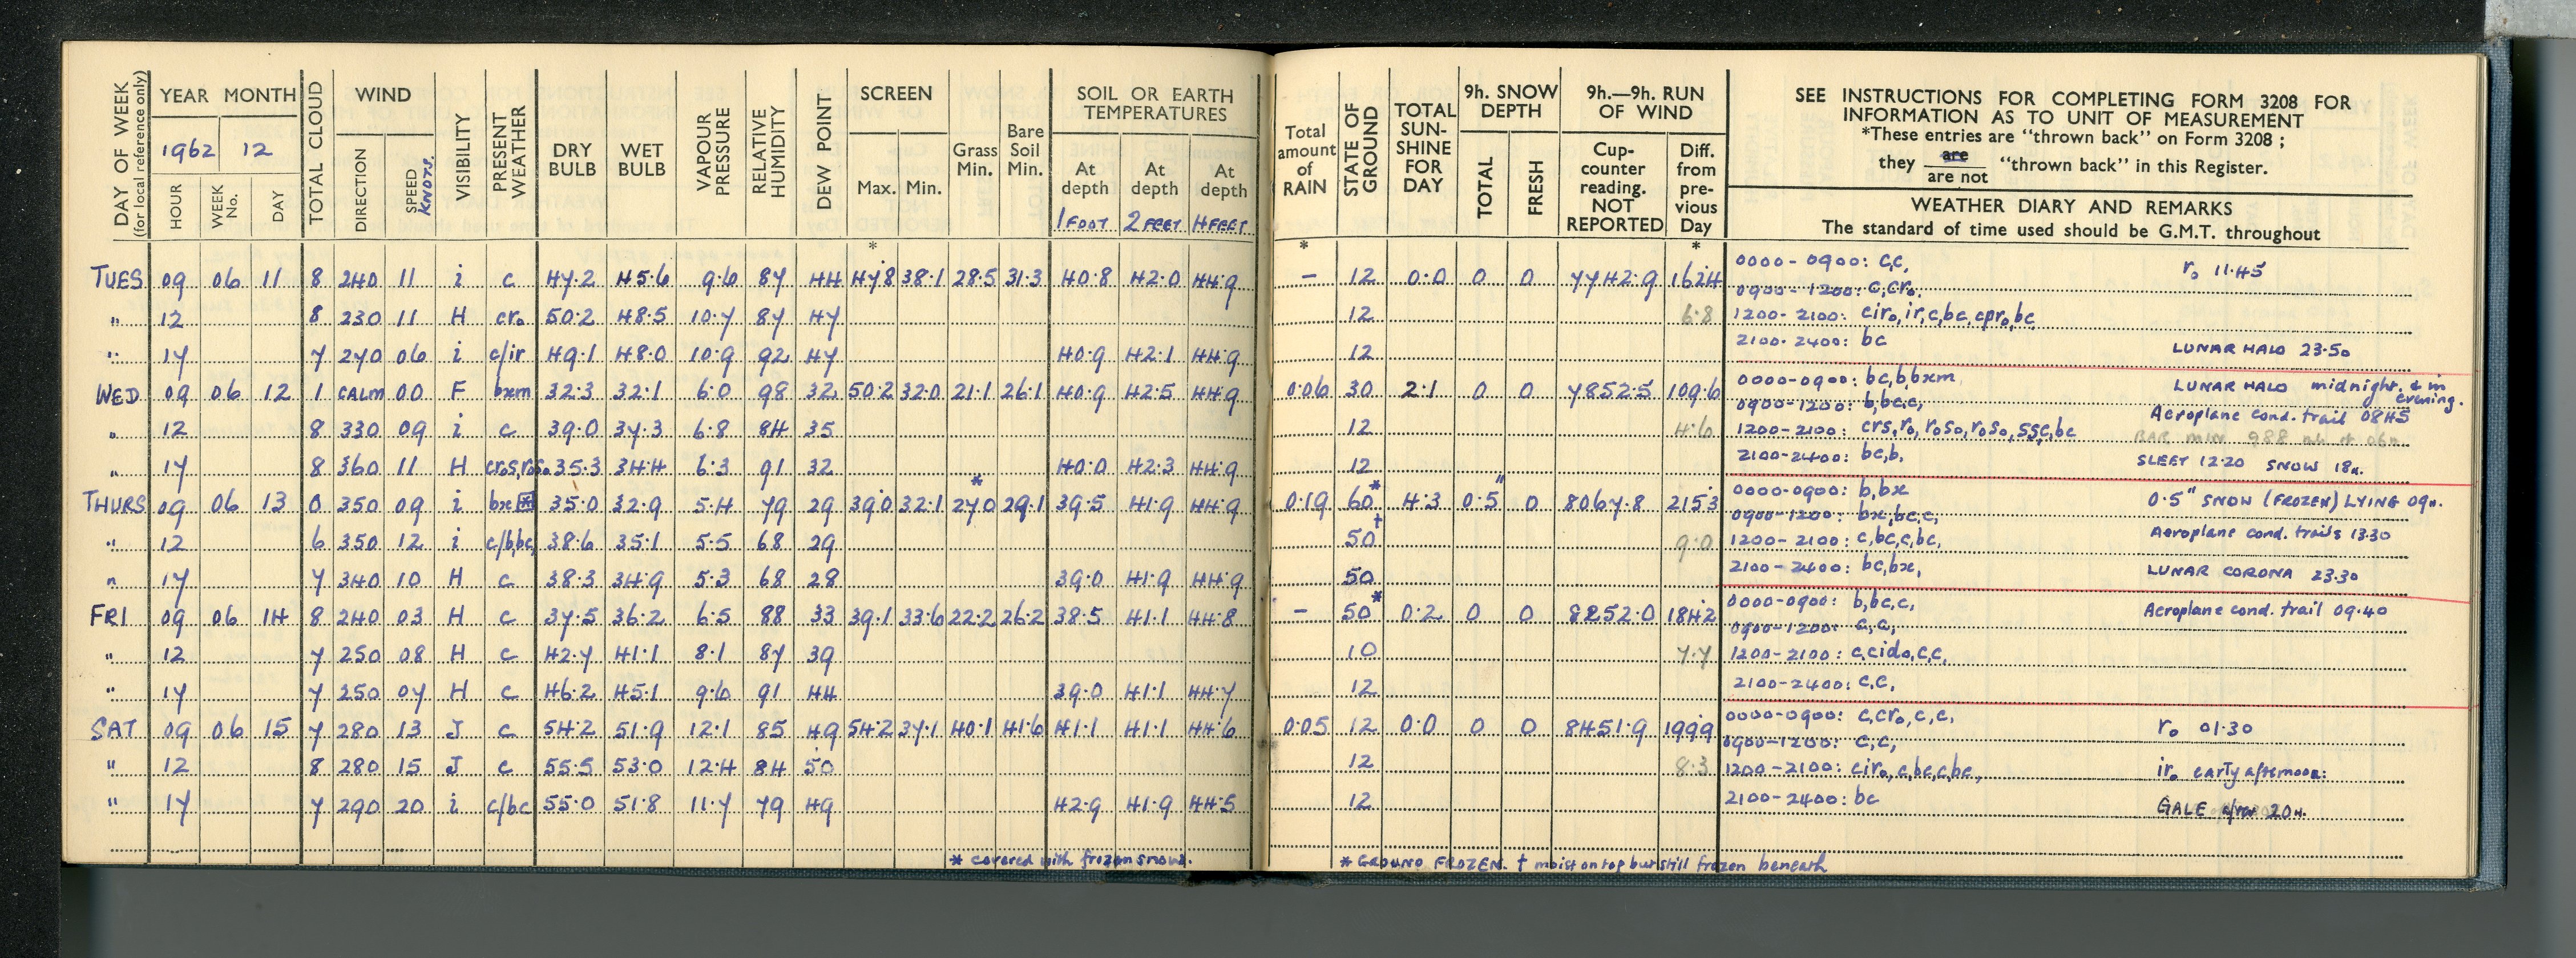 DAY OF WEEK (for local reference only) YEAR MONTH TOTAL CLOUD WIND VISIBILITY PRESENT WEATHER DRY BULB WET BULB VAPOUR PRESSURE RELATIVE HUMIDITY DEW POINT SCREEN Grass Min. Bare Soil Min. SOIL OR EARTH TEMPERATURES
1962 12
HOUR WEEK No. DAY DIRECTION SPEED KNOTS. Max. Min. At depth At depth At depth
1 FOOT 2 FEET 4 FEET
*
TUES 09 06 11 8 240 11 i c 47.2 45.6 9.6 87 44 47.8 38.1 28.5 31.3 40.8 42.0 44.9
" 12 8 230 11 H cr₀ 50.2 48.5 10.7 87 47
" 17 7 270 06 i c/ir 49.1 48.0 10.9 92 47 40.9 42.1 44.9
WED 09 06 12 1 CALM 00 F bxm 32.3 32.1 6.0 98 32 50.2 32.0 21.1 26.1 40.9 42.5 44.9
" 12 8 330 09 i c 39.0 37.3 6.8 84 35
" 17 8 360 11 H cr₀s,r₀s₀ 35.3 34.4 6.3 91 32 40.0 42.3 44.9
THURS 09 06 13 0 350 09 i bx* 35.0 32.9 5.4 79 29 39.0 32.1 27.0* 29.1 39.5 41.9 44.9
" 12 6 350 12 i c/b,bc, 38.6 35.1 5.5 68 29
" 17 7 340 10 H c 38.3 34.9 5.3 68 28 39.0 41.9 44.9
FRI 09 06 14 8 240 03 H c 37.5 36.2 6.5 88 33 39.1 33.6 22.2 26.2 38.5 41.1 44.8
" 12 7 250 08 H c 42.7 41.1 8.1 87 39
" 17 7 250 07 H c 46.2 45.1 9.6 91 44 39.0 41.1 44.7
SAT 09 06 15 7 280 13 J c 54.2 51.9 12.1 85 49 54.2 37.1 40.1 41.6 41.1 41.1 44.6
" 12 8 280 15 J c 55.5 53.0 12.4 84 50
" 17 7 290 20 i c/bc 55.0 51.8 11.7 79 49 42.9 41.9 44.5
* covered with frozen snow.
Total amount of RAIN STATE OF GROUND TOTAL SUN-SHINE FOR DAY 9h. SNOW DEPTH 9h.—9h. RUN OF WIND
TOTAL FRESH Cup-counter reading. NOT REPORTED Diff. from pre-vious Day
* *
SEE INSTRUCTIONS FOR COMPLETING FORM 3208 FOR
INFORMATION AS TO UNIT OF MEASUREMENT
*These entries are "thrown back" on Form 3208 ;
they are / are not "thrown back" in this Register.
WEATHER DIARY AND REMARKS
The standard of time used should be G.M.T. throughout
– 12 0.0 0 0 7742.9 162.4 0000-0900: c,c, r₀ 11.45
0900-1200: c,cr₀,
12 6.8 1200-2100: cir₀,ir,c,bc,cpr₀,bc
12 2100-2400: bc LUNAR HALO 23.50
0.06 30 2.1 0 0 7852.5 109.6 0000-0900: bc,b,bxm LUNAR HALO midnight. & in evening.
0900-1200: b,bc,c, Aeroplane cond. trail 0845
12 4.6 1200-2100: crs,r₀,r₀s₀,r₀s₀,ss,c,bc BAR MIN 988 mb at 06h.
12 2100-2400: bc,b. SLEET 12.20 SNOW 18h.
0.19 60* 4.3 0.5" 0 8067.8 215.3 0000-0900: b,bx 0.5" SNOW (FROZEN) LYING 09h.
0900-1200: bx,bc,c,
50† 9.0 1200-2100: c,bc,c,bc, Aeroplane cond. trails 1330
50 2100-2400: bc,bx, LUNAR CORONA 23.30
– 50* 0.2 0 0 8252.0 184.2 0000-0900: b,bc,c, Aeroplane cond. trail 09.40
0900-1200: c,c,
10 7.7 1200-2100: c,cid₀,c,c,
12 2100-2400: c,c,
0.05 12 0.0 0 0 8451.9 199.9 0000-0900: c,cr₀,c,c, r₀ 01.30
0900-1200: c,c,
12 8.3 1200-2100: cir₀,c,bc,c,bc, ir₀ early afternoon.
12 2100-2400: bc GALE 20h.
* GROUND FROZEN. † moist on top but still frozen beneath